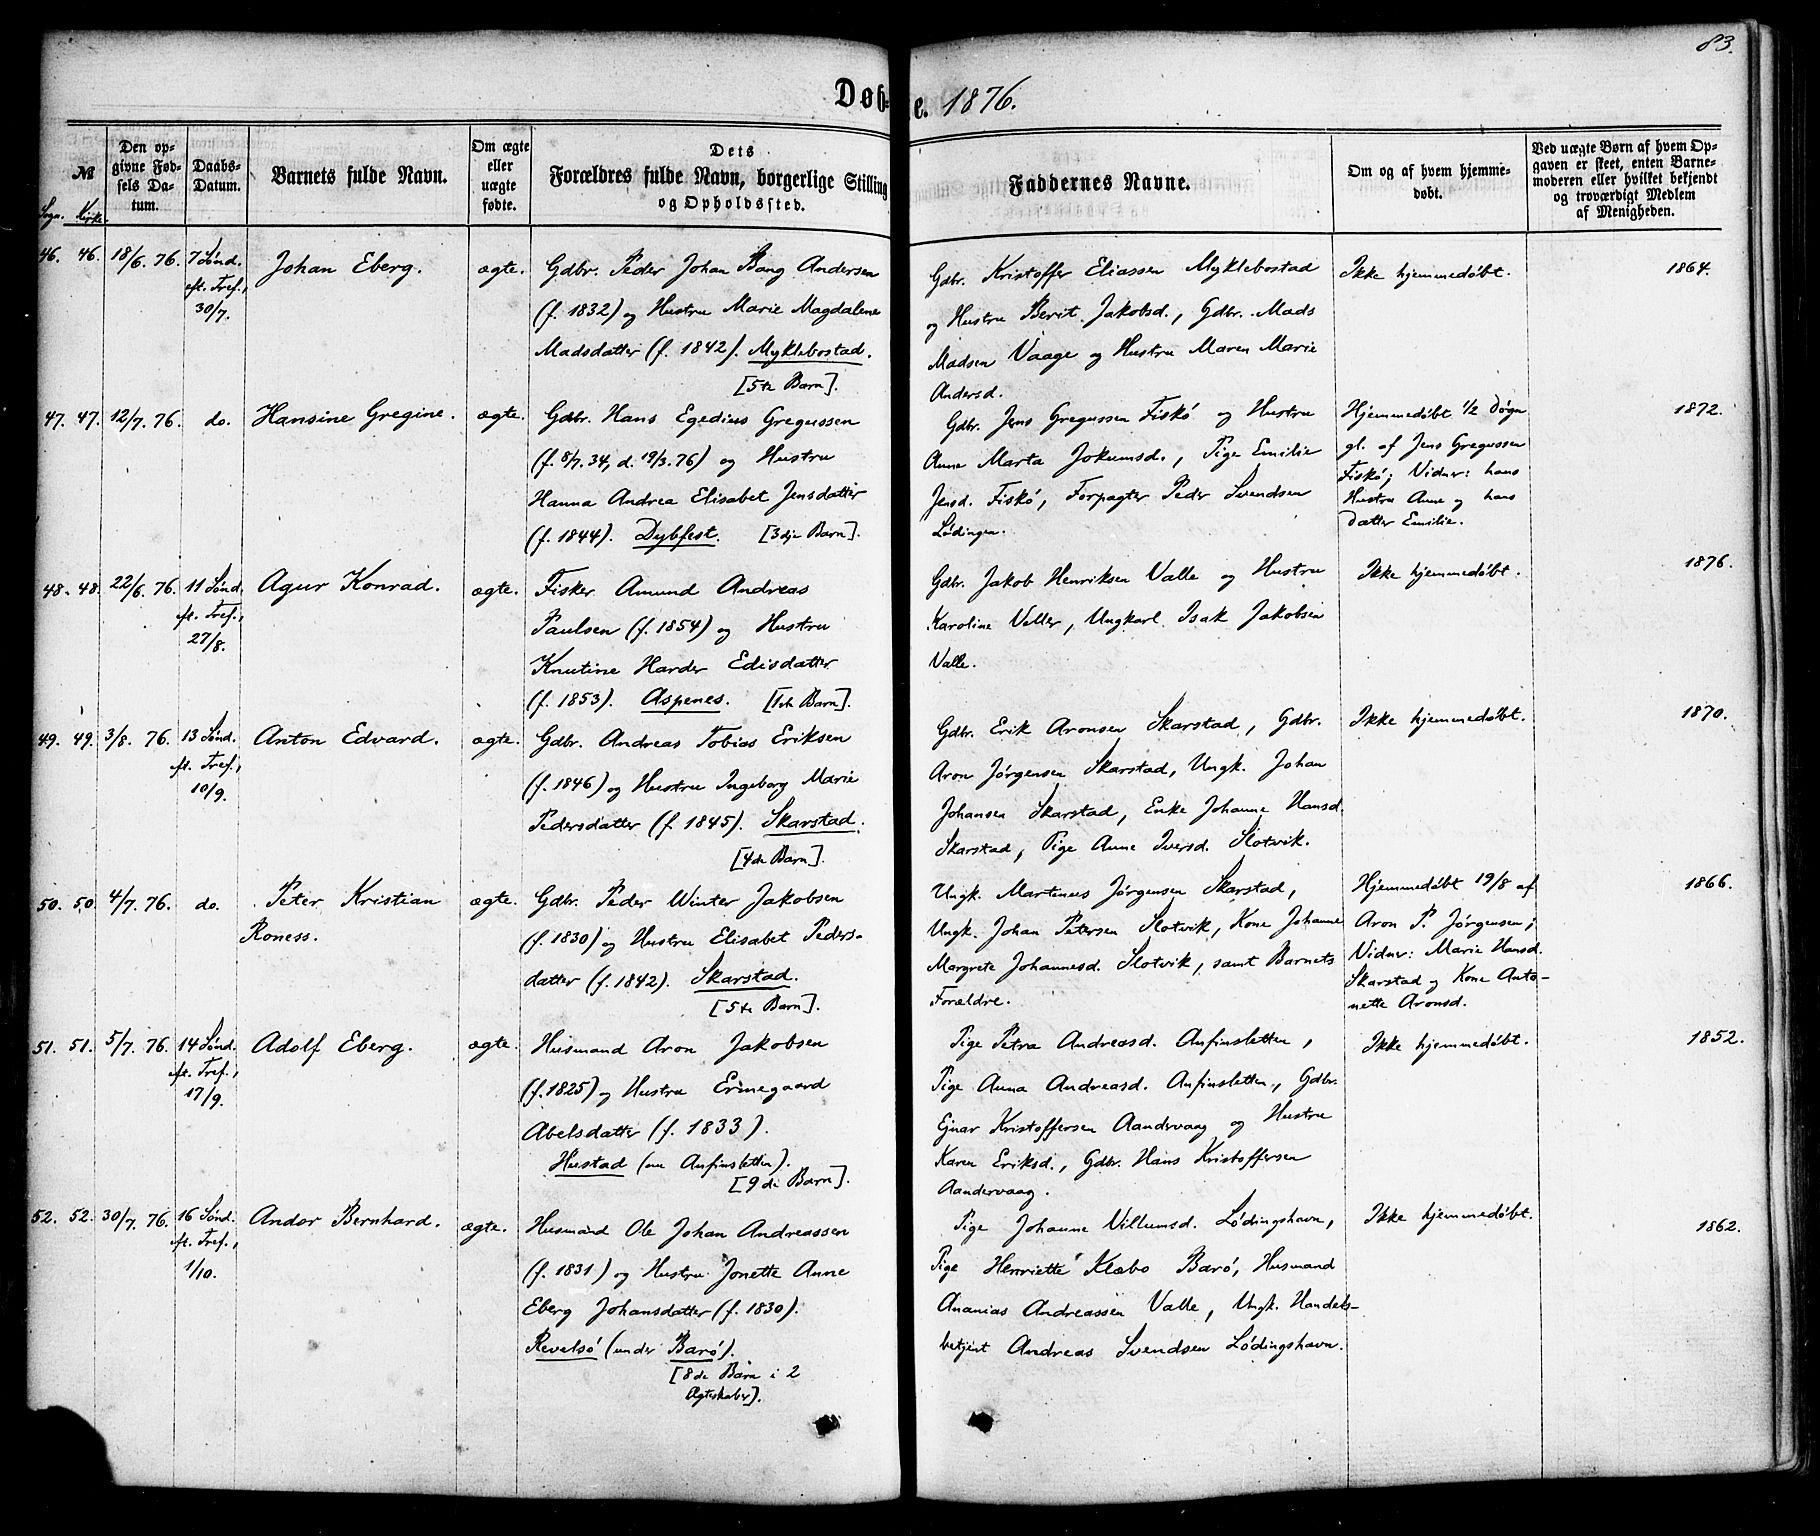 83.
Døb- e. 1876.
№
Sogn. Kirke.
Den op-
givne Fød-
sels Da-
tum.
Daabs-
Datum.
Barnets fulde Navn.
Om ægte
eller
uægte
fødte.
Dets
Forældres fulde Navn, borgerlige Stilling
og Opholdssted.
Faddernes Navne.
Om og af hvem hjemme-
døbt.
Ved uægte Børn af hvem Op-
gaven er skeet, enten Barne-
moderen eller hvilket bekjendt
og troværdigt Medlem
af Menigheden.
46. 46. 18/6. 76. 7 Sønd.
eft. Tref.,
30/7.
Johan Eberg.
ægte.
Gdbr. Peder Johan Bang Andersen
(f. 1832) og Hustru Marie Magdalene
Madsdatter (f. 1842). Myklebostad.
[5te Barn].
Gdbr. Kristoffer Eliassen Myklebostad
og Hustru Berit Jakobsd., Gdbr. Mads
Madsen Vaage og Hustru Maren Marie
Andersd.
Ikke hjemmedøbt.
1864.
47. 47. 12/7. 76. do.
Hansine Gregine.
ægte.
Gdbr. Hans Egedius Gregussen
(f. 8/7. 34, d. 19/3. 76) og Hustru
Hanna Andrea Elisabet Jensdatter
(f. 1844). Dybfest. [3dje Barn].
Gdbr. Jens Gregussen Fiskø og Hustru
Anne Marta Jokumsd., Pige Emilie
Jensd. Fiskø, Forpagter Peder Svendsen
Lødingen.
Hjemmedøbt 1/2 Døgn
gl. af Jens Gregussen
Fiskø; Vidner: hans
Hustru Anne og hans
Datter Emilie.
1872.
48. 48. 22/6. 76. 11 Sønd.
eft. Tref.,
27/8.
Agur Konrad.
ægte.
Fisker Amund Andreas
Paulsen (f. 1854) og Hustru
Knutine Harder Edisdatter
(f. 1853). Aspenes. [1ste Barn].
Gdbr. Jakob Henriksen Valle og Hustru
Karoline Valler, Ungkarl Isak Jakobsen
Valle.
Ikke hjemmedøbt.
1876.
49. 49. 3/8. 76. 13 Sønd.
eft. Tref.,
10/9.
Anton Edvard.
ægte.
Gdbr. Andreas Tobias Eriksen
(f. 1846) og Hustru Ingeborg Marie
Pedersdatter (f. 1845). Skarstad.
[4de Barn].
Gdbr. Erik Aronsen Skarstad, Gdbr.
Aron Jørgensen Skarstad, Ungk. Johan
Johansen Skarstad, Enke Johanne Hansd.
Skarstad, Pige Anne Iversd. Slotvik.
Ikke hjemmedøbt.
1870.
50. 50. 4/7. 76. do.
Peter Kristian
Roness.
ægte.
Gdbr. Peder Winter Jakobsen
(f. 1830) og Hustru Elisabet Peders-
datter (f. 1842). Skarstad.
[5te Barn].
Ungk. Martinus Jørgensen Skarstad,
Ungk. Johan Petersen Slotvik, Kone Johanne
Margrete Johannesd. Slotvik, samt Barnets
Forældre.
Hjemmedøbt 19/8 af
Aron P. Jørgensen;
Vidner: Marie Hansd.
Skarstad og Kone Anto-
nette Aronsd.
1866.
51. 51. 5/7. 76. 14 Sønd.
eft. Tref.,
17/9.
Adolf Eberg.
ægte.
Husmand Aron Jakobsen
(f. 1825) og Hustru Ermegaard
Abelsdatter (f. 1833).
Hustad (nu Anfinsletten).
[9de Barn].
Pige Petra Andreasd. Anfinsletten,
Pige Anna Andreasd. Anfinsletten, Gdbr.
Ejnar Kristoffersen Aandervaag og Hustru
Karen Eriksd., Gdbr. Hans Kristoffersen
Aandervaag.
Ikke hjemmedøbt.
1852.
52. 52. 30/7. 76. 16 Sønd.
eft. Tref.,
1/10.
Andor Bernhard.
ægte.
Husmand Ole Johan Andreassen
(f. 1831) og Hustru Jonette Anne
Eberg Johansdatter (f. 1830).
Revelsø (under Barø).
[8de Barn i 2
Ægteskaber].
Pige Johanne Villumsd. Lødingshavn,
Pige Henriette Klæbo Barø, Husmand
Ananias Andreassen Valle, Ungk. Handels-
betjent Andreas Svendsen Lødingshavn.
Ikke hjemmedøbt.
1862.